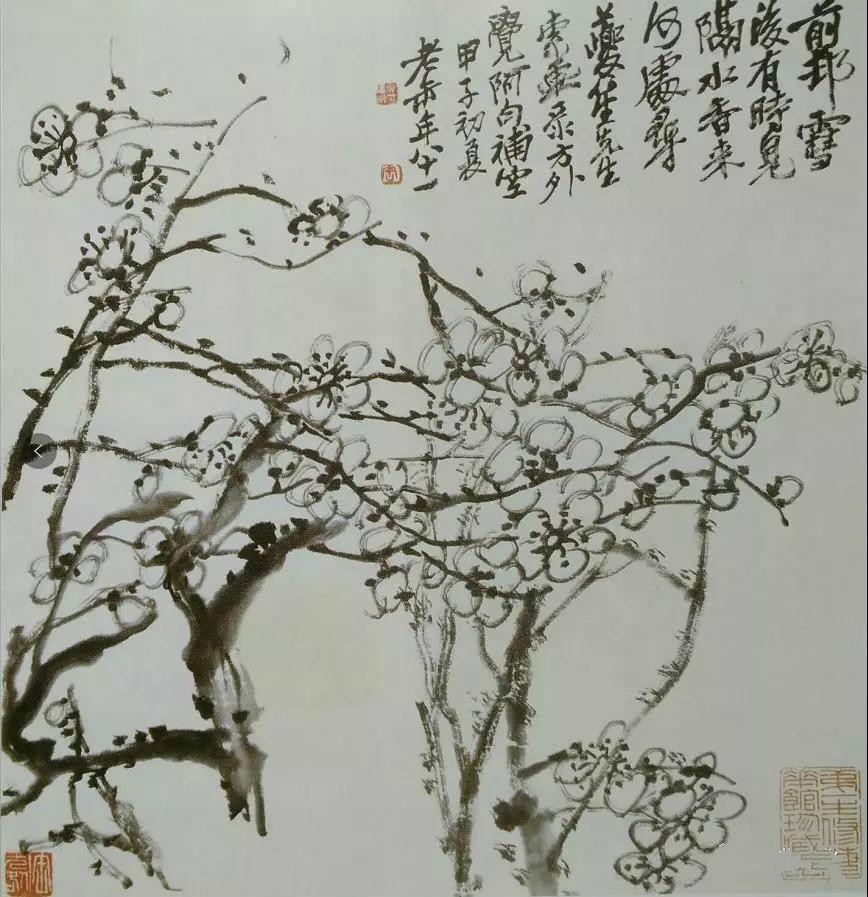 前邨雪
後有時見
隔水香来
何處尋
夔笙先生
索畫录方外
覺阿句補空
甲子初夏
老缶年八十一